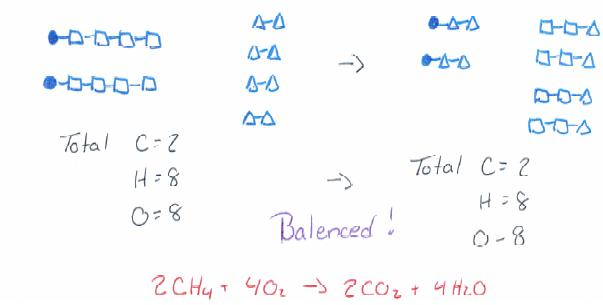 Total C=2
H=8
O=8
→
Total C=2
H=8
O-8
Balenced!
2CH4 + 4O2 → 2CO2 + 4H2O